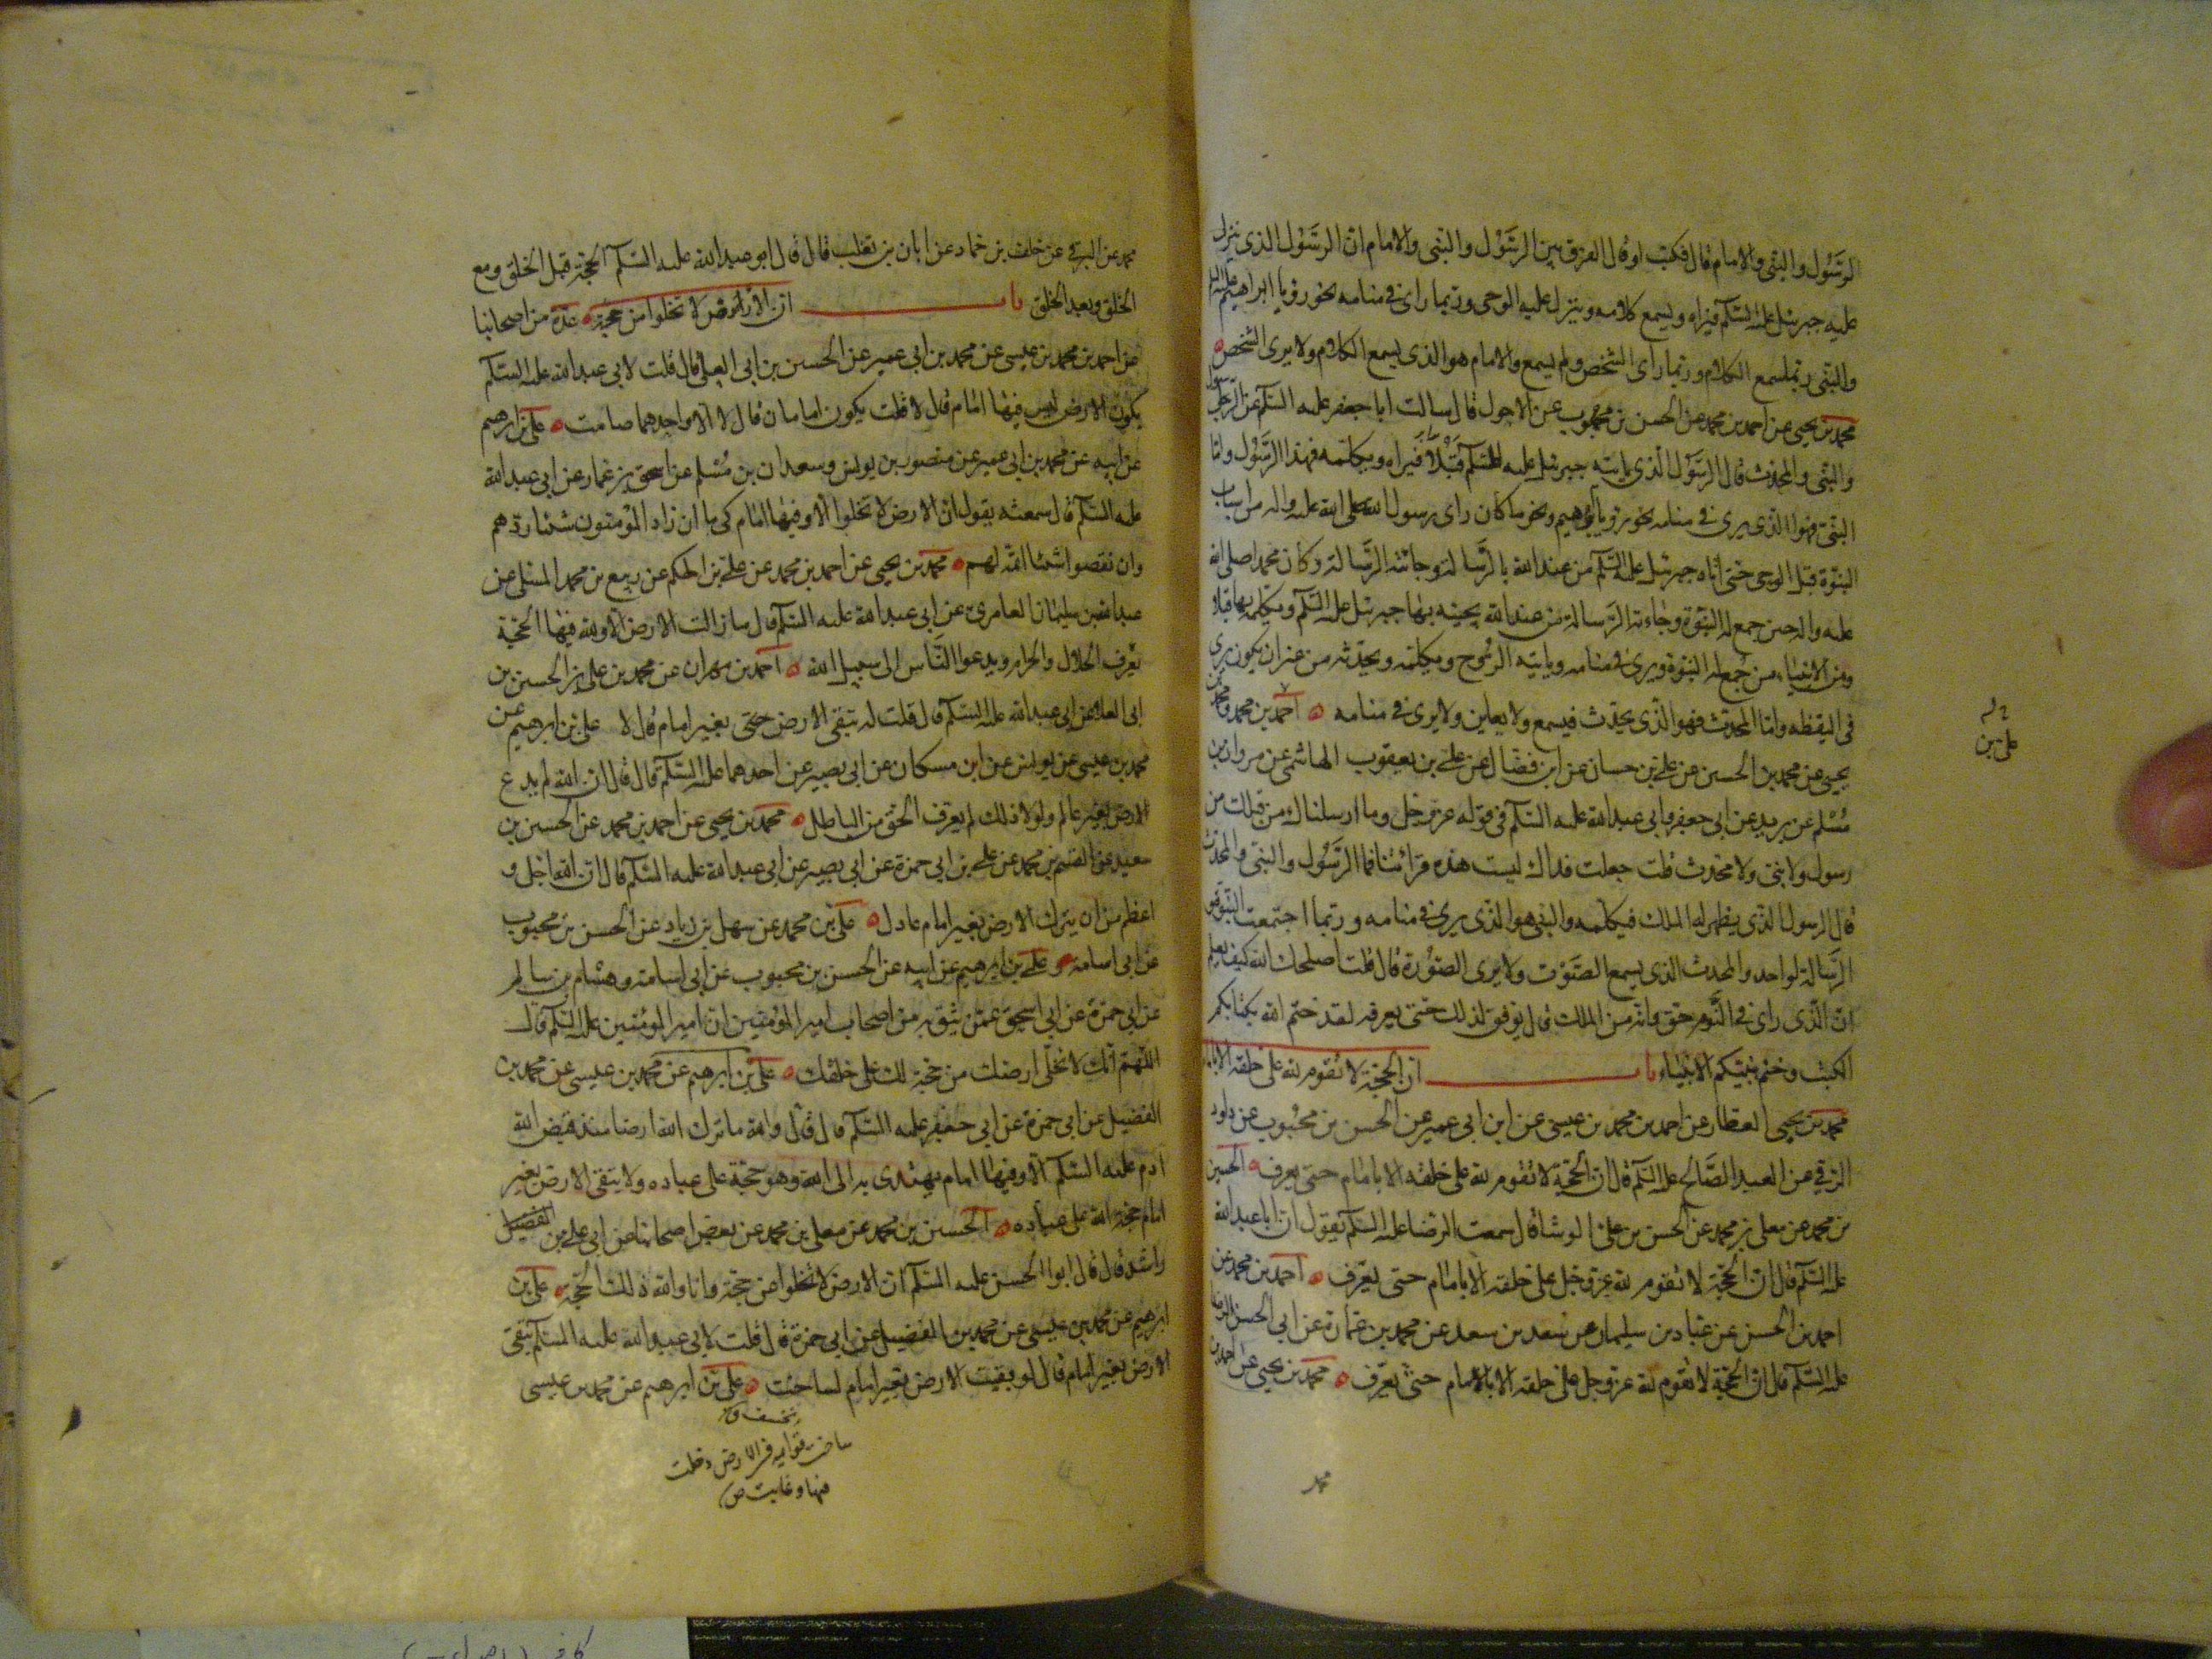 الرسول والنبى والامام قال فكتب او قال الفرق بين الرسول والنبى والامام ان الرسول الذى ينزل
عليه جبرئيل عليه السلم فيراه ويسمع كلامه وينزل عليه الوحى وربما راى فى منامه نحو رؤيا ابراهيم عليه السلم
والنبى ربما سمع الكلام وربما راى الشخص ولم يسمع والامام هو الذى يسمع الكلام ولا يرى الشخص
محمد بن يحيى عن احمد بن محمد عن الحسن بن محبوب عن الاحول قال سالت ابا جعفر عليه السلم عن الرسول
والنبى والمحدث قال الرسول الذى ياتيه جبرئيل عليه السلم قبلا فيراه ويكلمه فهذا الرسول واما
النبى فهو الذى يرى فى منامه نحو رؤيا ابرهيم ونحو ما كان راى رسول الله صلى الله عليه واله من اسباب
النبوة قبل الوحى حتى اتاه جبرئيل عليه السلم من عند الله بالرسالة وجائته الرسالة وكان محمدا صلى الله
عليه واله حين جمع له النبوة وجاءته الرسالة من عند الله يجيئه بها جبرئيل عليه السلم ويكلمه بها قبلا
ومن الانبياء من جمع له النبوة ويرى فى منامه وياتيه الروح ويكلمه ويحدثه من غير ان يكون يرى
فى اليقظه واما المحدث فهو الذى يحدث فيسمع ولا يعاين ولا يرى فى منامه احمد بن محمد ومحمد بن
يحيى عن محمد بن الحسين عن على بن حسان عن ابن فضال عن على بن يعقوب الهاشمى عن مروان بن
مسلم عن بريد عن ابى جعفر وابى عبد الله عليه السلم فى قوله عز وجل وما ارسلناك من قبلك من
رسول ولا نبى ولا محدث قلت جعلت فداك ليست هذه قرائتنا فما الرسول والنبى والمحدث
قال الرسول الذى يظهر له الملك فيكلمه والنبى هو الذى يرى فى منامه وربما اجتمعت النبوة و
الرسالة لواحد والمحدث الذى يسمع الصوت ولا يرى الصورة قال قلت اصلحك الله كيف يعلم
ان الذى راى فى النوم حق وانه من الملك قال يوفق لذلك حتى يعرفه لقد ختم الله بكتابكم
الكتب وختم بنبيكم الانبياء باب ان الحجة لا تقوم لله على خلقه الا بامام
محمد بن يحيى العطار عن احمد بن محمد بن عيسى عن ابن ابى عمير عن الحسن بن محبوب عن داود
الرقى عن العبد الصالح عليه السلم قال ان الحجة لا تقوم لله على خلقه الا بامام حتى يعرف الحسين
بن محمد عن معلى بن محمد عن الحسن بن على الوشا قال سمعت الرضا عليه السلم يقول ان ابا عبد الله
عليه السلم قال ان الحجة لا تقوم لله عز وجل على خلقه الا بامام حتى يعرف احمد بن محمد عن
احمد بن الحسن عن عباد بن سليمان عن سعد بن سعد عن محمد بن عمارة عن ابى الحسن الرضا
عليه السلم قال ان الحجة لا تقوم لله عز وجل على خلقه الا بامام حتى يعرف محمد بن يحيى عن احمد بن
محمد
على بن
محمد عن البرقى عن خلف بن حماد عن ابان بن تغلب قال قال ابو عبد الله عليه السلم الحجة قبل الخلق ومع
الخلق وبعد الخلق باب ان الارض لا تخلوا من حجة عدة من اصحابنا
عن احمد بن محمد بن عيسى عن محمد بن ابى عمير عن الحسين بن ابى العلا قال قلت لابى عبد الله عليه السلم
يكون الارض ليس فيها امام قال لا قلت يكون امامان قال لا الا واحدهما صامت على بن ابرهيم
عن ابيه عن محمد بن ابى عمير عن منصور بن يونس وسعدان بن مسلم عن اسحق بن عمار عن ابى عبد الله
عليه السلم قال سمعته يقول ان الارض لا تخلوا الا وفيها امام كى ما ان زاد المؤمنون شيئا ردهم
وان نقصوا شيئا اتمه لهم محمد بن يحيى عن احمد بن محمد عن على بن الحكم عن ربيع بن محمد المسلى عن
عبد الله بن سليمان العامرى عن ابى عبد الله عليه السلم قال ما زالت الارض الا ولله فيها الحجة
يعرف الحلال والحرام ويدعوا الناس الى سبيل الله احمد بن مهران عن محمد بن على عن الحسين بن
ابى العلا عن ابى عبد الله عليه السلم قال قلت له تبقى الارض حتى بغير امام قال لا على بن ابرهيم عن
محمد بن عيسى عن يونس عن ابن مسكان عن ابى بصير عن احدهما عليه السلم قال قال ان الله لم يدع
الارض بغير عالم ولولا ذلك لم يعرف الحق من الباطل محمد بن يحيى عن احمد بن محمد عن الحسين بن
سعيد عن القسم بن محمد عن على بن ابى حمزة عن ابى بصير عن ابى عبد الله عليه السلم قال ان الله اجل و
اعظم من ان يترك الارض بغير امام عادل على بن محمد عن سهل بن زياد عن الحسن بن محبوب
عن ابى اسامة و على بن ابرهيم عن ابيه عن الحسن بن محبوب عن ابى اسامة وهشام بن سالم
عن ابى حمزة عن ابى اسحق عمن يثق به من اصحاب امير المؤمنين ان امير المؤمنين عليه السلم قال
اللهم انك لا تخلى ارضك من حجة لك على خلقك على بن ابرهيم عن محمد بن عيسى عن محمد بن
الفضيل عن ابى حمزة عن ابى جعفر عليه السلم قال قال والله ما ترك الله ارضا منذ قبض الله
ادم عليه السلم الا وفيها امام يهتدى به الى الله وهو حجة على عباده ولا يتقى الارض بغير
امام حجة الله على عباده الحسين بن محمد عن معلى بن محمد عن بعض اصحابنا عن ابى على بن
راشد قال قال ابوا الحسن عليه السلم ان الارض لا تخلوا من حجة وانا والله ذلك الحجة على بن
ابرهيم عن محمد بن عيسى عن محمد بن الفضيل عن ابى حمزة قال قلت لابى عبد الله عليه السلم تبقى
الارض بغير امام قال لو بقيت الارض بغير امام لساخت على بن ابرهيم عن محمد بن عيسى
ساخت قوايمه فى الارض دخلت
فيها وغابت ص